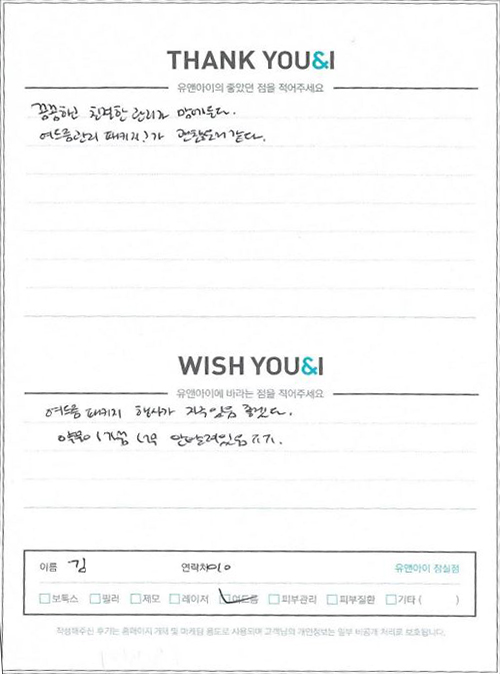 THANK YOU&I
유앤아이의 좋았던 점을 적어주세요
꼼꼼하고 친절한 관리가 맘에든다.
여드름관리 패키지?가 괜찮은거 같다.
WISH YOU&I
유앤아이에 바라는 점을 적어주세요
여드름 패키지 행사가 자주있음 좋겠다.
ㅠㅠ.
이름 김 연락처 010 유앤아이 잠실점
보톡스 필러 제모 레이저 여드름 피부관리 피부질환 기타 ( )
작성해주신 후기는 홈페이지 게재 및 마케팅 용도로 사용되며 고객님의 개인정보는 일부 비공개 처리로 보호됩니다.